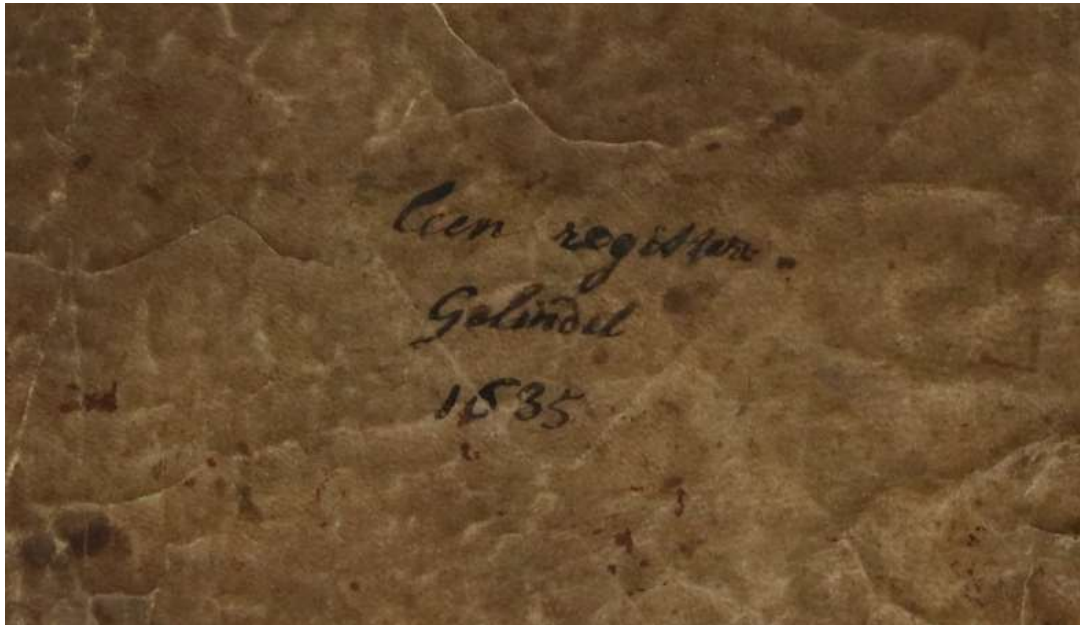 leen register.
Gelindel
1635